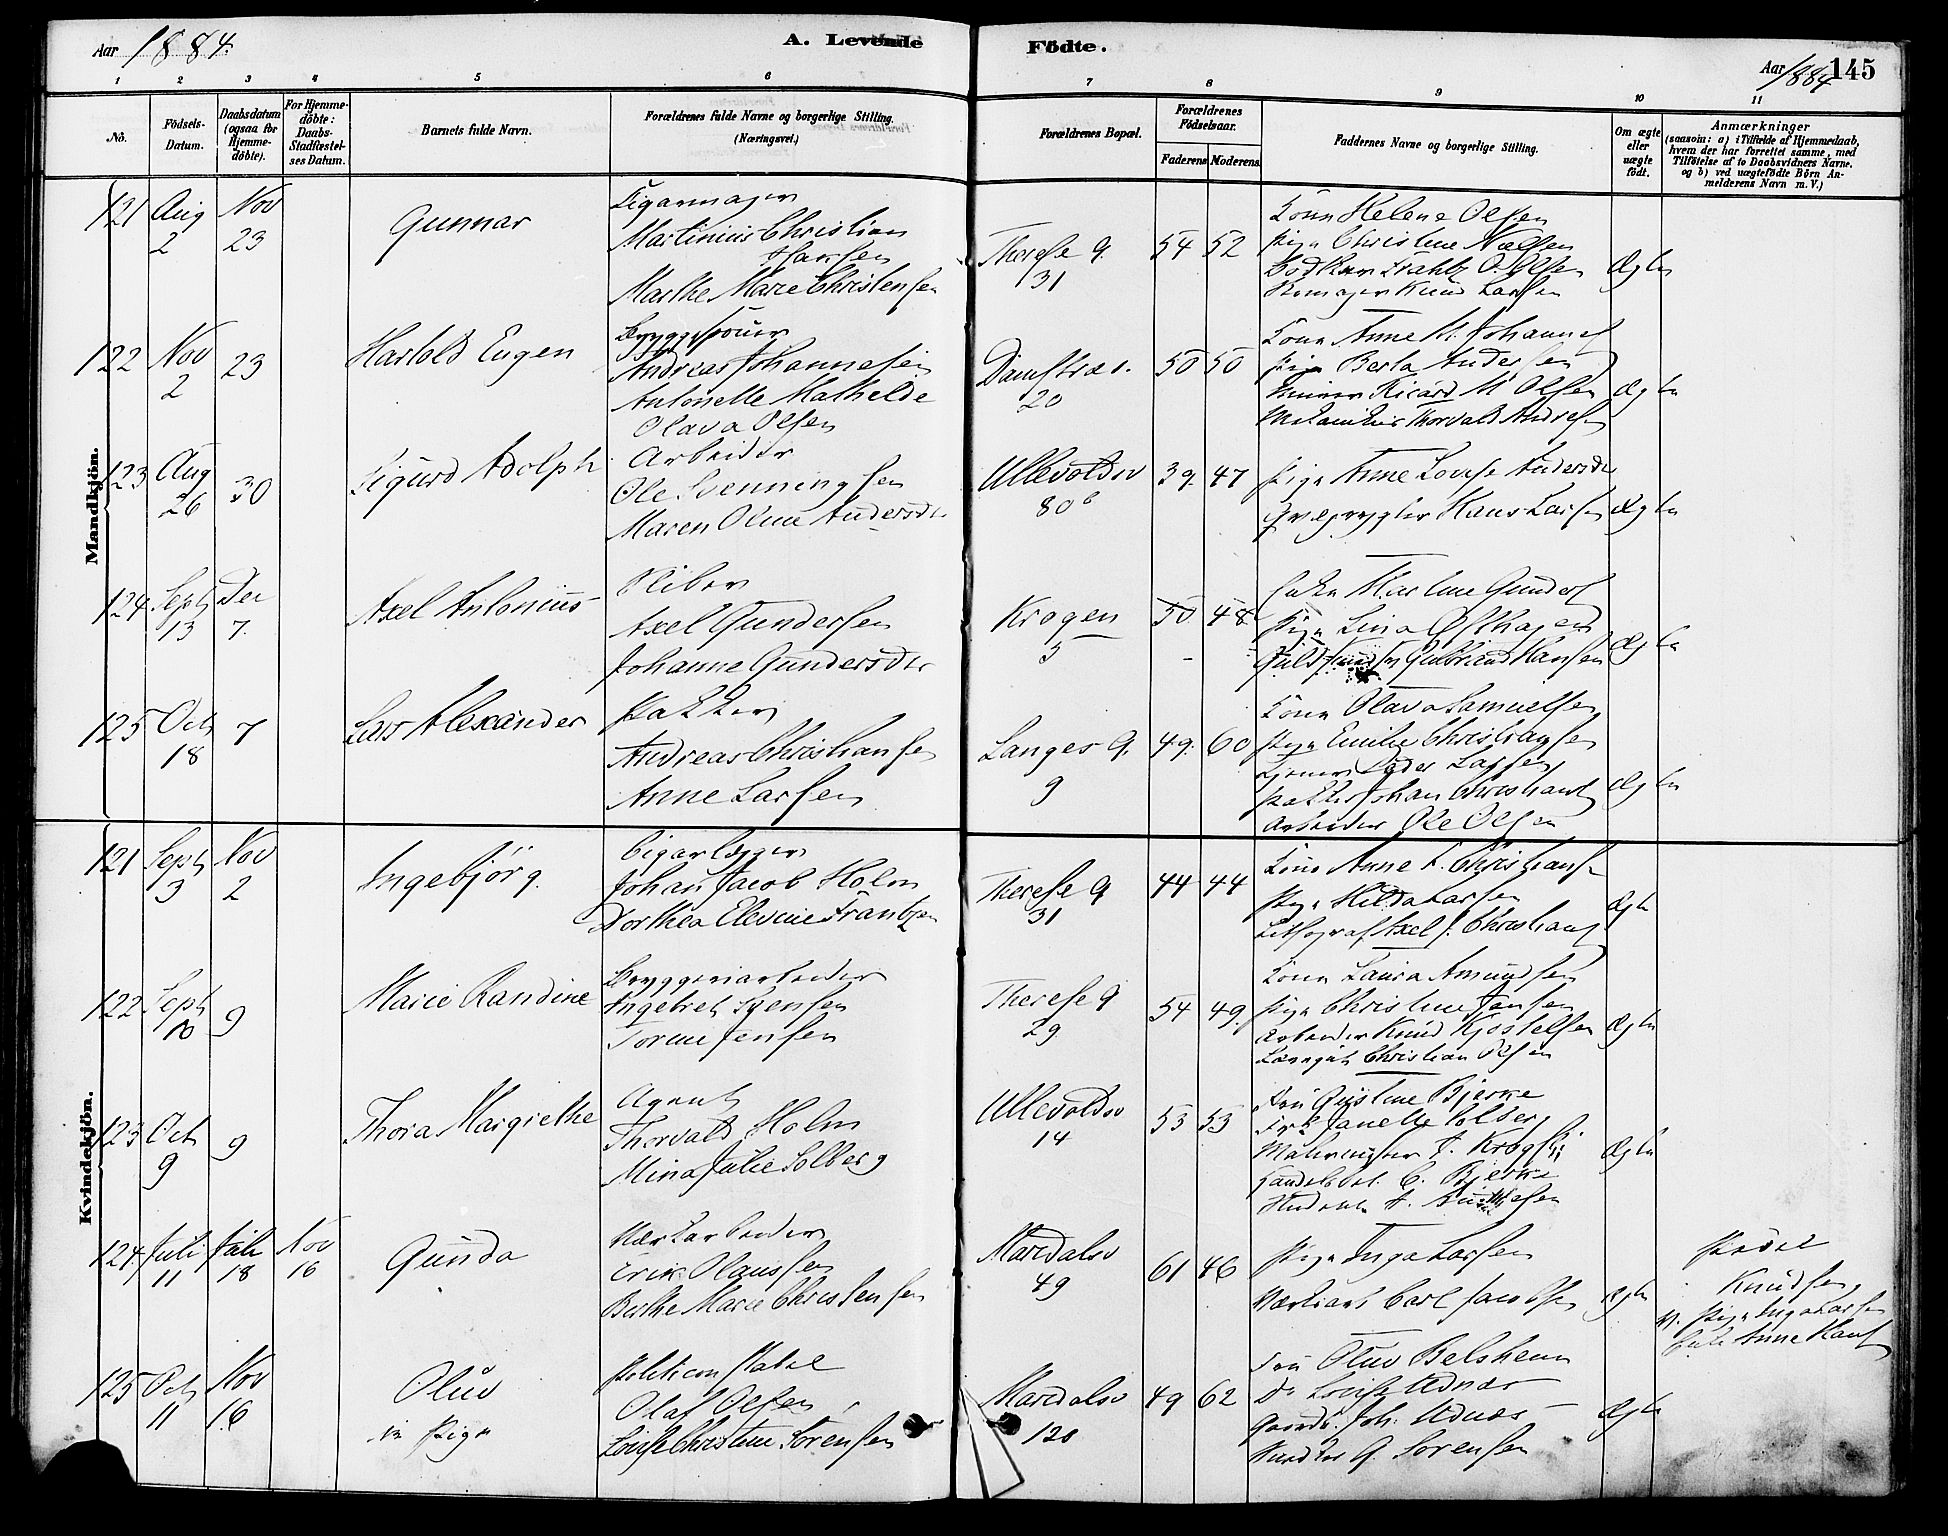 Aar 1884.
A. Levende Födte.
Aar 1884 145
1 2 3 4 5 6 7 8 9 10 11
No.
Födsels-Datum.
Daabsdatum (ogsaa for Hjemme-döbte).
For Hjemme-döbte: Daabs-Stadfæstel-ses Datum.
Barnets fulde Navn.
Forældrenes fulde Navne og borgerlige Stilling.
(Næringsvei.)
Forældrenes Bopæl.
Forældrenes Födselsaar.
Faderens Moderens
Faddernes Navne og borgerlige Stilling.
Om ægte eller uægte födt.
Anmærkninger
(saasom: a) i Tilfælde af Hjemmedaab,
hvem der har forrettet samme, med
Tilföielse af to Daabsvidners Navne,
og b) ved uægtefödte Börn An-
melderens Navn m. V.)
Mandkjön.
121 Aug 2 Nov 23
Gunnar
Martinius Christian
Hansen
Marthe Marie Christensen
Therese g. 31
54 52
Helene Olsen
Pige Christine Nielsen
Knud Larsen
Ægte
122 Nov 2 23
Harhold Eugen
Andreas Johannesen
Antonette Mathilde
Olava Olsen
Damstræd. 20
50 50
Kone Anne M. Johannes
Pige Berta Andersen
Ricard M Olsen
Thorvald Andresen
Ægte
123 Aug 26 30
Sigurd Adolph
Arbeider
Ole Svenningsen
Maren Oline Andersdr
Ullevoldsv 80 b
39. 47
Pige Anne Lovise Andersdr
Hans Larsen
Ægte
124 Sept 13 Dec 7.
Axel Antonius
Sliber
Axel Gundersen
Johanne Gundersdr
Krogen 5
50 48
Martine Gunders
Pige Lina Østhagen
Gulbrand Hansen
Ægte
125 Oct 18 7
Lars Alexander
Pakker
Andreas Christiansen
Anne Larsen
Langes g. 9
49. 60
Kone Olava Samuelsen
Pige Emilie Christiansen
Peder Larsen
Pakker Johan Christians
Arbeider Ole Olsen
Ægte
Kvindekjön.
121 Sept 3 Nov 2
Ingebjörg.
Johan Jacob Holm
Dorthea Elevine Frantzen
Therese g 31
44 44
Anne K. Christians
Pige Hilda Larsen
Lithograf Axel J. Christians
Ægte
122 Sept 10 9
Marie Randine
Bryggeriarbeider
Ingebret Syensen
Torine Jensen
Therese g 29
54 49.
Kone Laura Amundsen
Pige Christine Jansen
Arbeider Knud Kjostelsen
Christian Olsen
Ægte
123 Oct 9 9
Thora Margrethe
Agent
Thorvald Holm
Mina Julie Solberg
Ullevoldsv 14
53 53
Fru Gustine Bjerke
Frk Janette Solberg
C. Bjerke
Ægte
124 Juli 11 Juli 18 Nov 16
Gunda
Værkarbeider
Erik Olaussen
Berthe Marie Christensen
Maridalsv 49
61 46
Pige Inga Larsen
Carl Jacobsen
Ægte
Knudsen,
Pige Inga Larsen
Anne Hans
125 Oct 11 Nov 16
Oluv
en Pige
Politiconstabel
Olaf Olsen
Lovise Christine Sörensen
Maridalsv 120
49 62
Fru Oluv Belsheim
Do Lovise Udnæs
Joh. Udnæs
G. Sorensen
Ægte